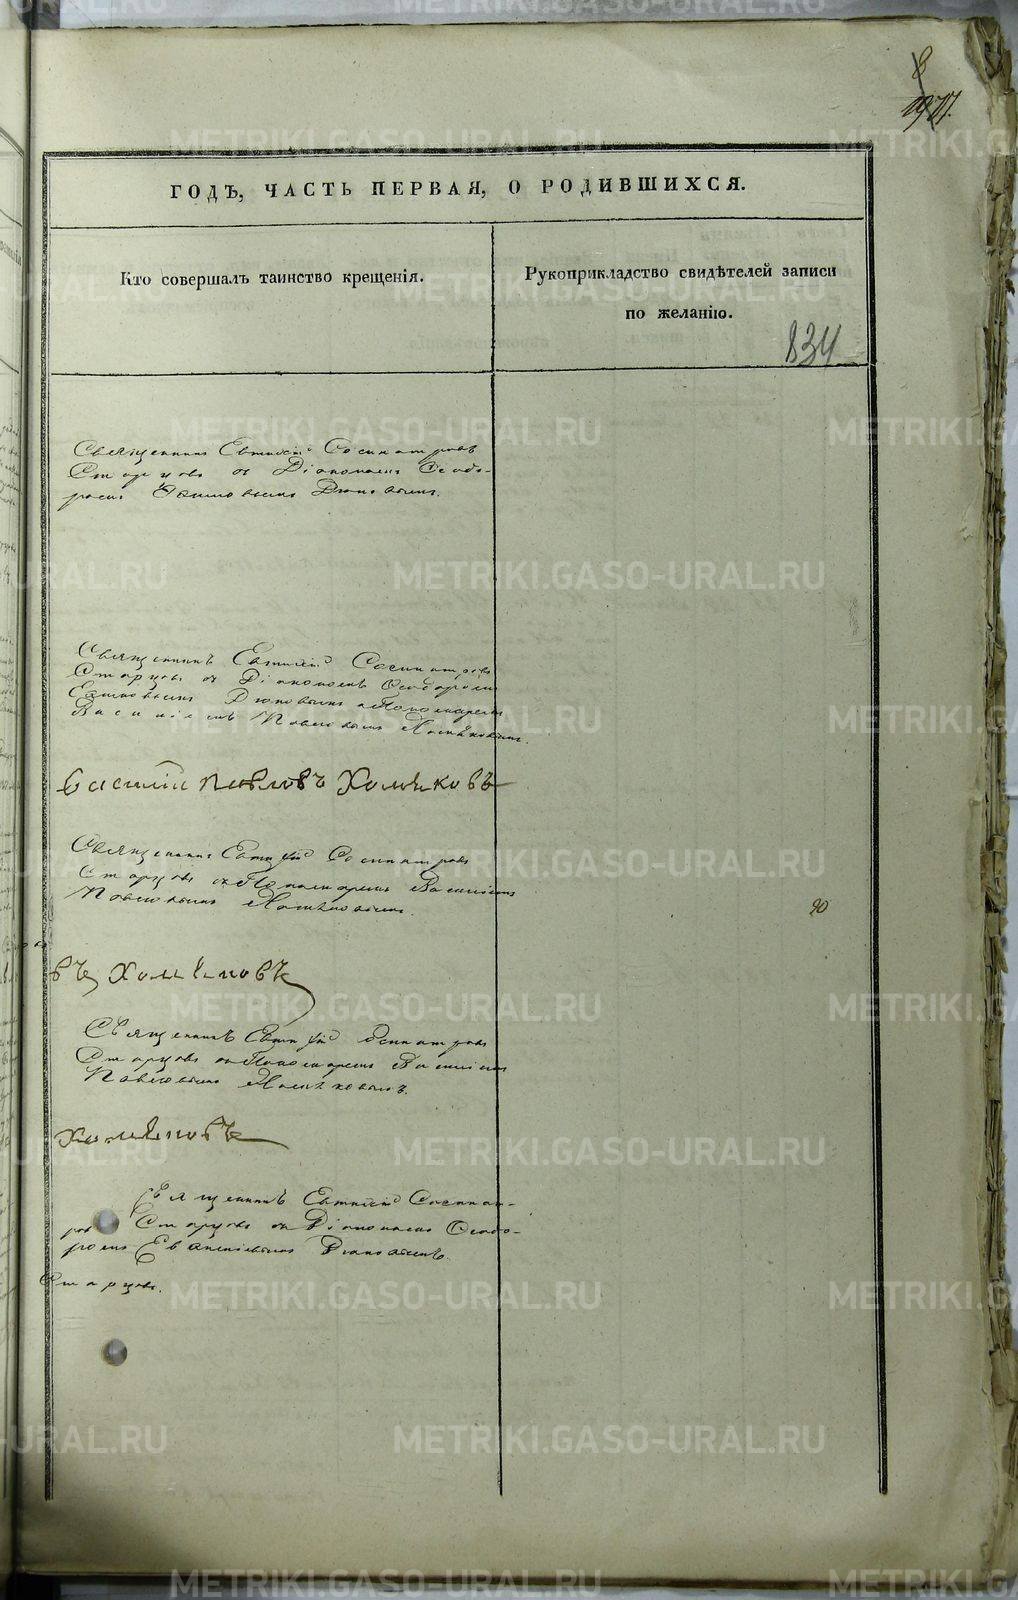 8
ГОДЪ, ЧАСТЬ ПЕРВАЯ, О РОДИВШИХСЯ.
Кто совершалъ таинство крещенія.
Рукоприкладство свидѣтелей записи
по желанію.
834
Священникъ Евтихій Сосипатровъ
Старцовъ съ Діакономъ Ѳеодо-
ромъ Дюковымъ.
Священникъ Евтихій Сосипатровъ
Старцовъ съ Діакономъ Ѳеодоромъ
Дюковымъ
Василіемъ Павловымъ Хомяковымъ.
Василій Павловъ Хомяковъ
Священникъ Евтихій Сосипатровъ
Старцовъ съ Пономаремъ Василіемъ
Павловымъ Хомяковымъ.
90
въ Хомяковъ
Священникъ Евтихій Сосипатровъ
Старцовъ съ Пономаремъ Василіемъ
Павловымъ Хомяковымъ.
Хомяковъ
Священникъ Евтихій Сосипат-
ровъ Старцовъ съ Діакономъ Ѳеодо-
ромъ Дюковымъ
Старцовъ.
METRIKI.GASO-URAL.RU